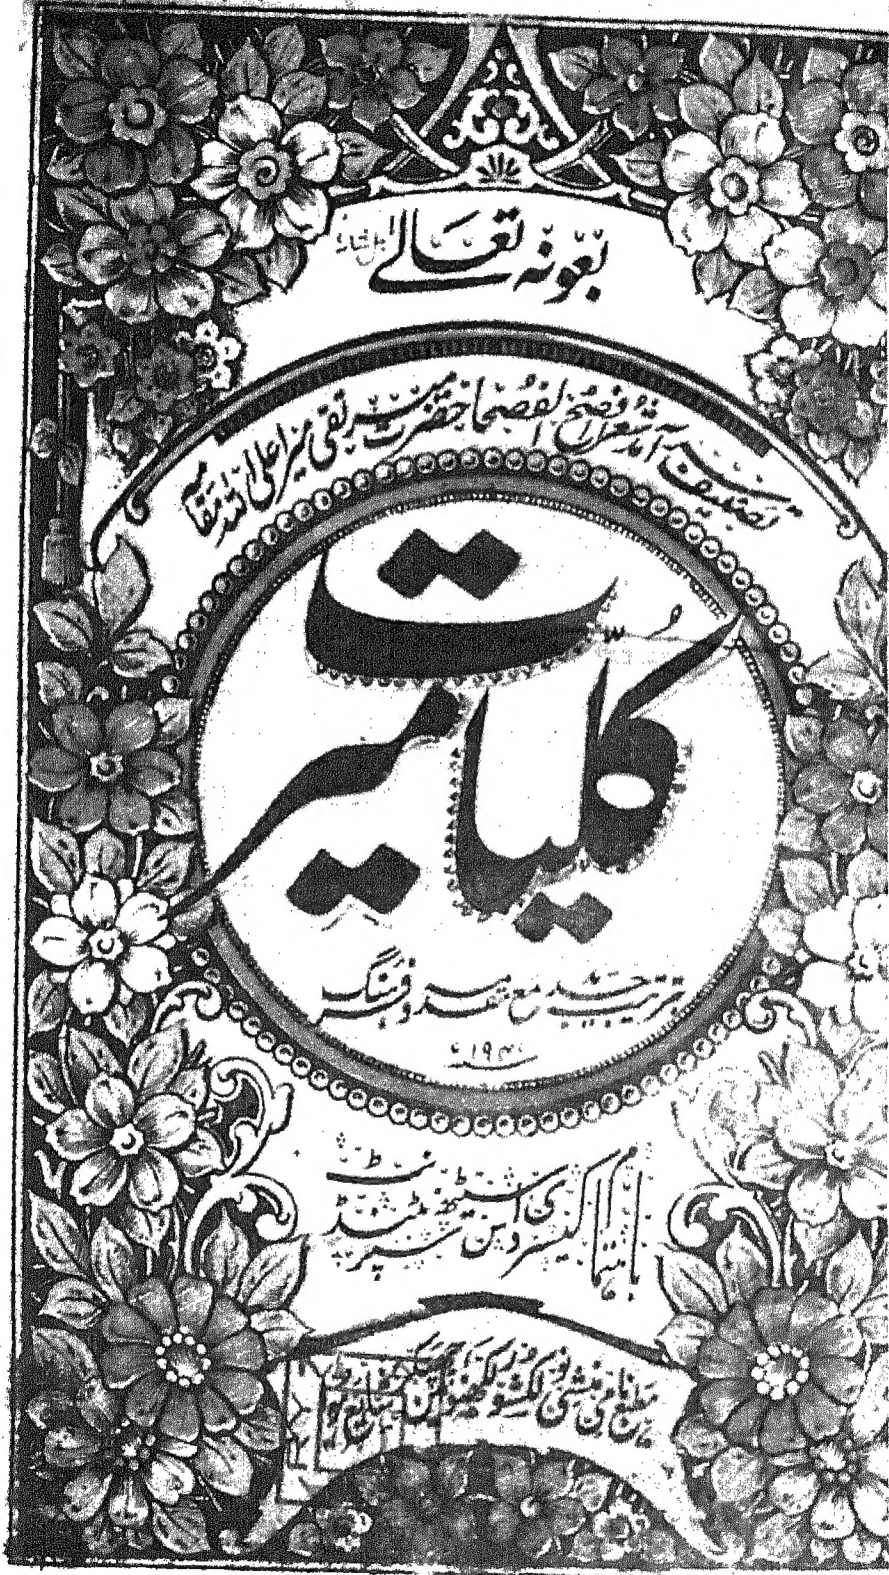 بعونہ تعالیٰ
تصنیف سرآمد شعرا افصح الفصحا حضرت میر تقی میر اعلی اللہ مقامہ
کلیات میر
بترتیب جدید مع مقدمہ و فرہنگ
سنہ ۱۹۴۱ء
باہتمام کیسری داس سیٹھ سپرنٹنڈنٹ
مطبع نامی منشی نولکشور لکھنؤ میں